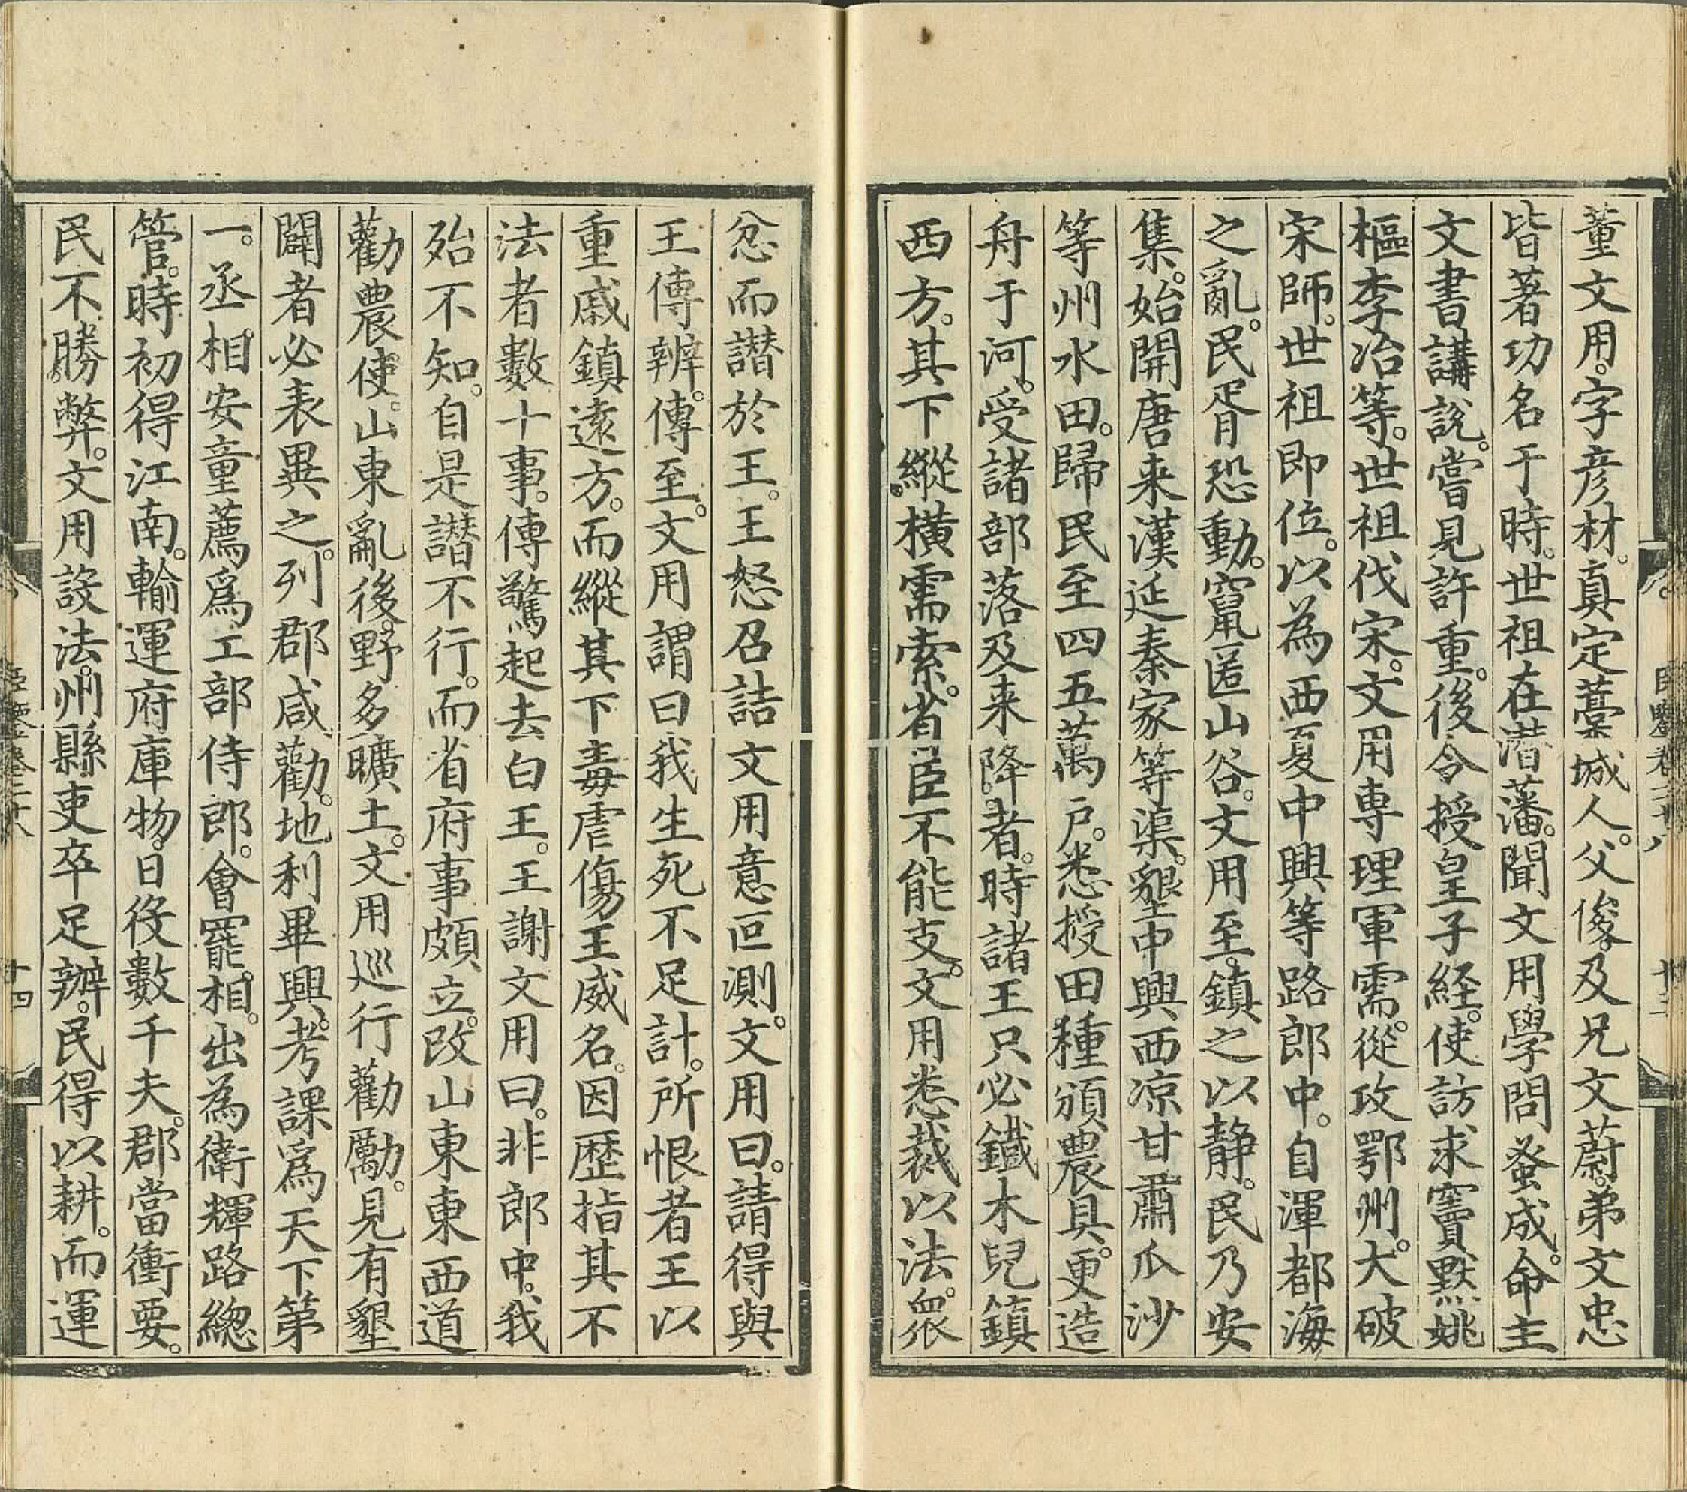 董文用。字彦材。真定藁城人。父俊及兄文蔚。弟文忠
皆著功名于時。世祖在潜藩。聞文用學問蚤成。命主
文書講説。嘗見許重。後令授皇子経。使訪求竇默姚
樞李冶等。世祖伐宋。文用専理軍需。從攻鄂州。大破
宋師。世祖即位。以為西夏中興等路郎中。自渾都海
之亂。民胥恐動。竄匿山谷。文用至。鎮之以静。民乃安
集。始開唐来漢延秦家等渠。墾中興西凉甘肅瓜沙
等州水田。歸民至四五萬戸。悉授田種。頒農具。更造
舟于河。受諸部落及来降。者。時諸王只必鐵木兒鎮
西方。其下縱横需索。省臣不能支。文用悉裁以法。衆
忿而譖於王。王怒召詰文用意叵測。文用曰。請得與
王傳辨。傳至。文用謂曰我生死不足計。所恨者王以
重戚鎮遠方。而縱其下毒虐傷王威名。因歴指其不
法者數十事。傳驚起去白王。王謝文用曰。非郎中。我
殆不知。自是譖不行。而省府事頗立。改山東東西道
勸農使。山東亂後。野多曠土。文用巡行勸勵。見有墾
闢者必表異之。列郡咸勸。地利畢興。考課爲天下第
一。丞相安童薦爲工部侍郎。會罷相。出為衛輝路總
管。時初得江南。輸運府庫物。日役數千夫。郡當衝要。
民不勝。弊。文用設法。州縣吏卒足辦。民得以耕。而運